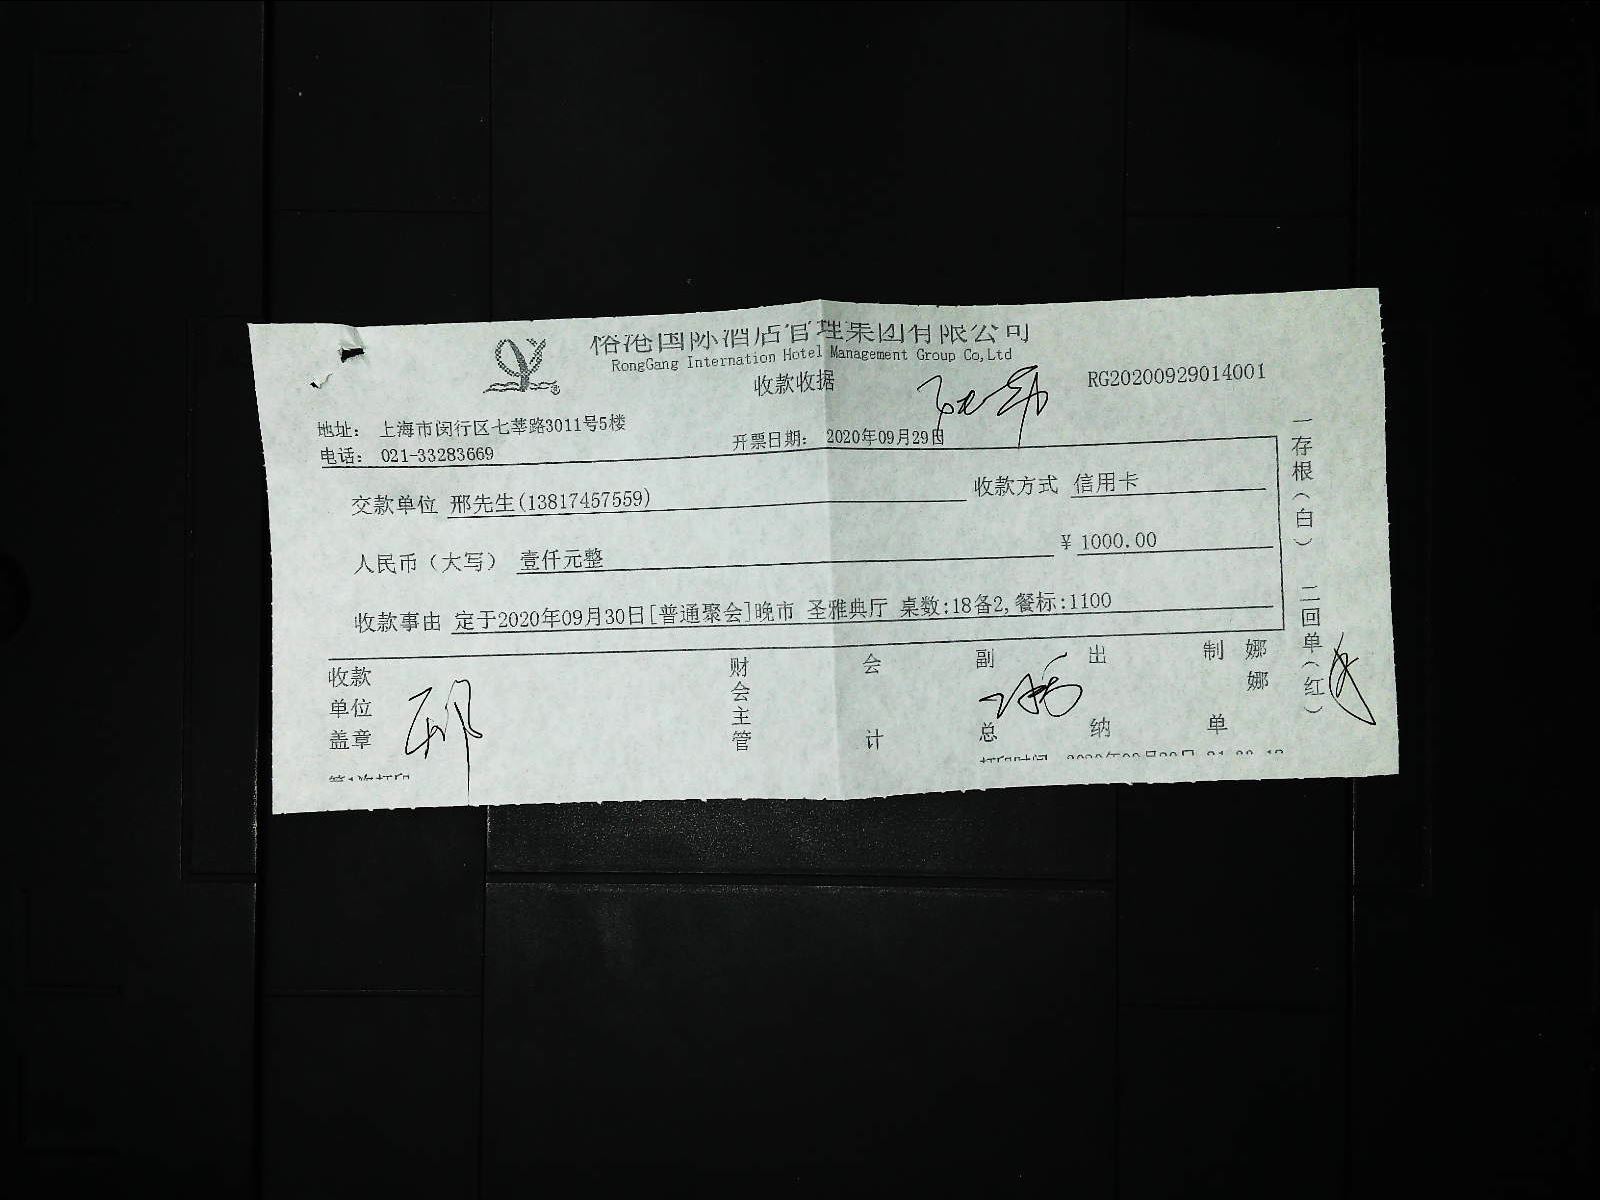 国际酒店管理集团有限公司
RongGang Internation Hotel Management Group Co,Ltd
收款收据
RG20200929014001
地址： 上海市闵行区七莘路3011号5楼
电话： 021-33283669
开票日期： 2020年09月29日
交款单位 邢先生(13817457559)
收款方式 信用卡
人民币（大写） 壹仟元整
￥ 1000.00
收款事由 定于2020年09月30日[普通聚会]晚市 圣雅典厅 桌数:18备2,餐标:1100
收款单位盖章
邢
财会主管
会计
副总
出纳
制单
娜娜
一存根（白） 二回单（红）
第1次打印
打印时间